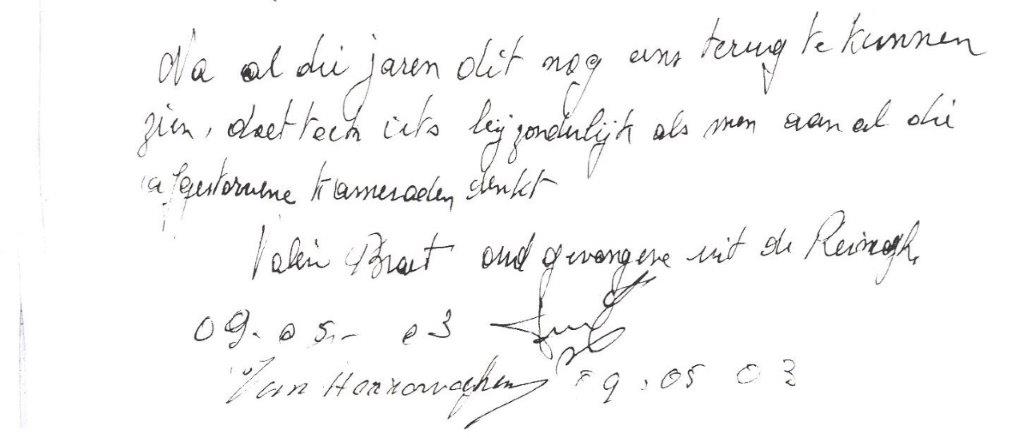 Na al die jaren dit nog eens terug te kunnen
zien, doet toch iets bijzonderlijk als men aan al die
afgestorvene kameraden denkt
Braet oud gevangene uit de
09.05.- 03
Van 09.05 03